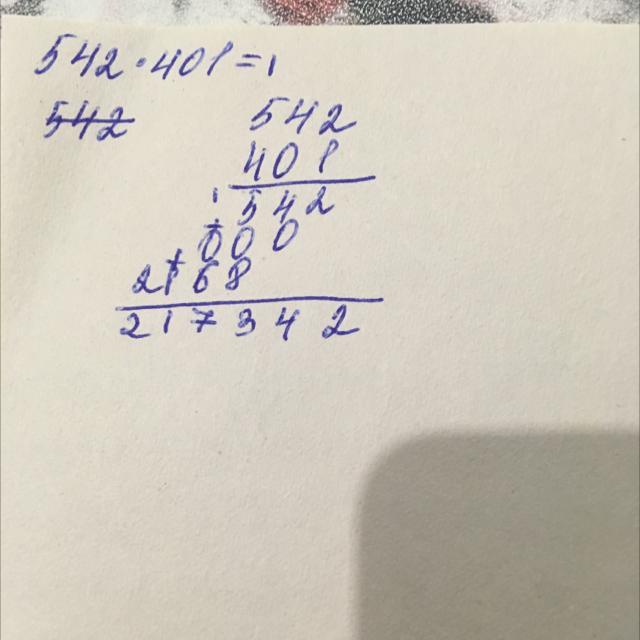 542·401=
542
542
401
542
000
2168
217342